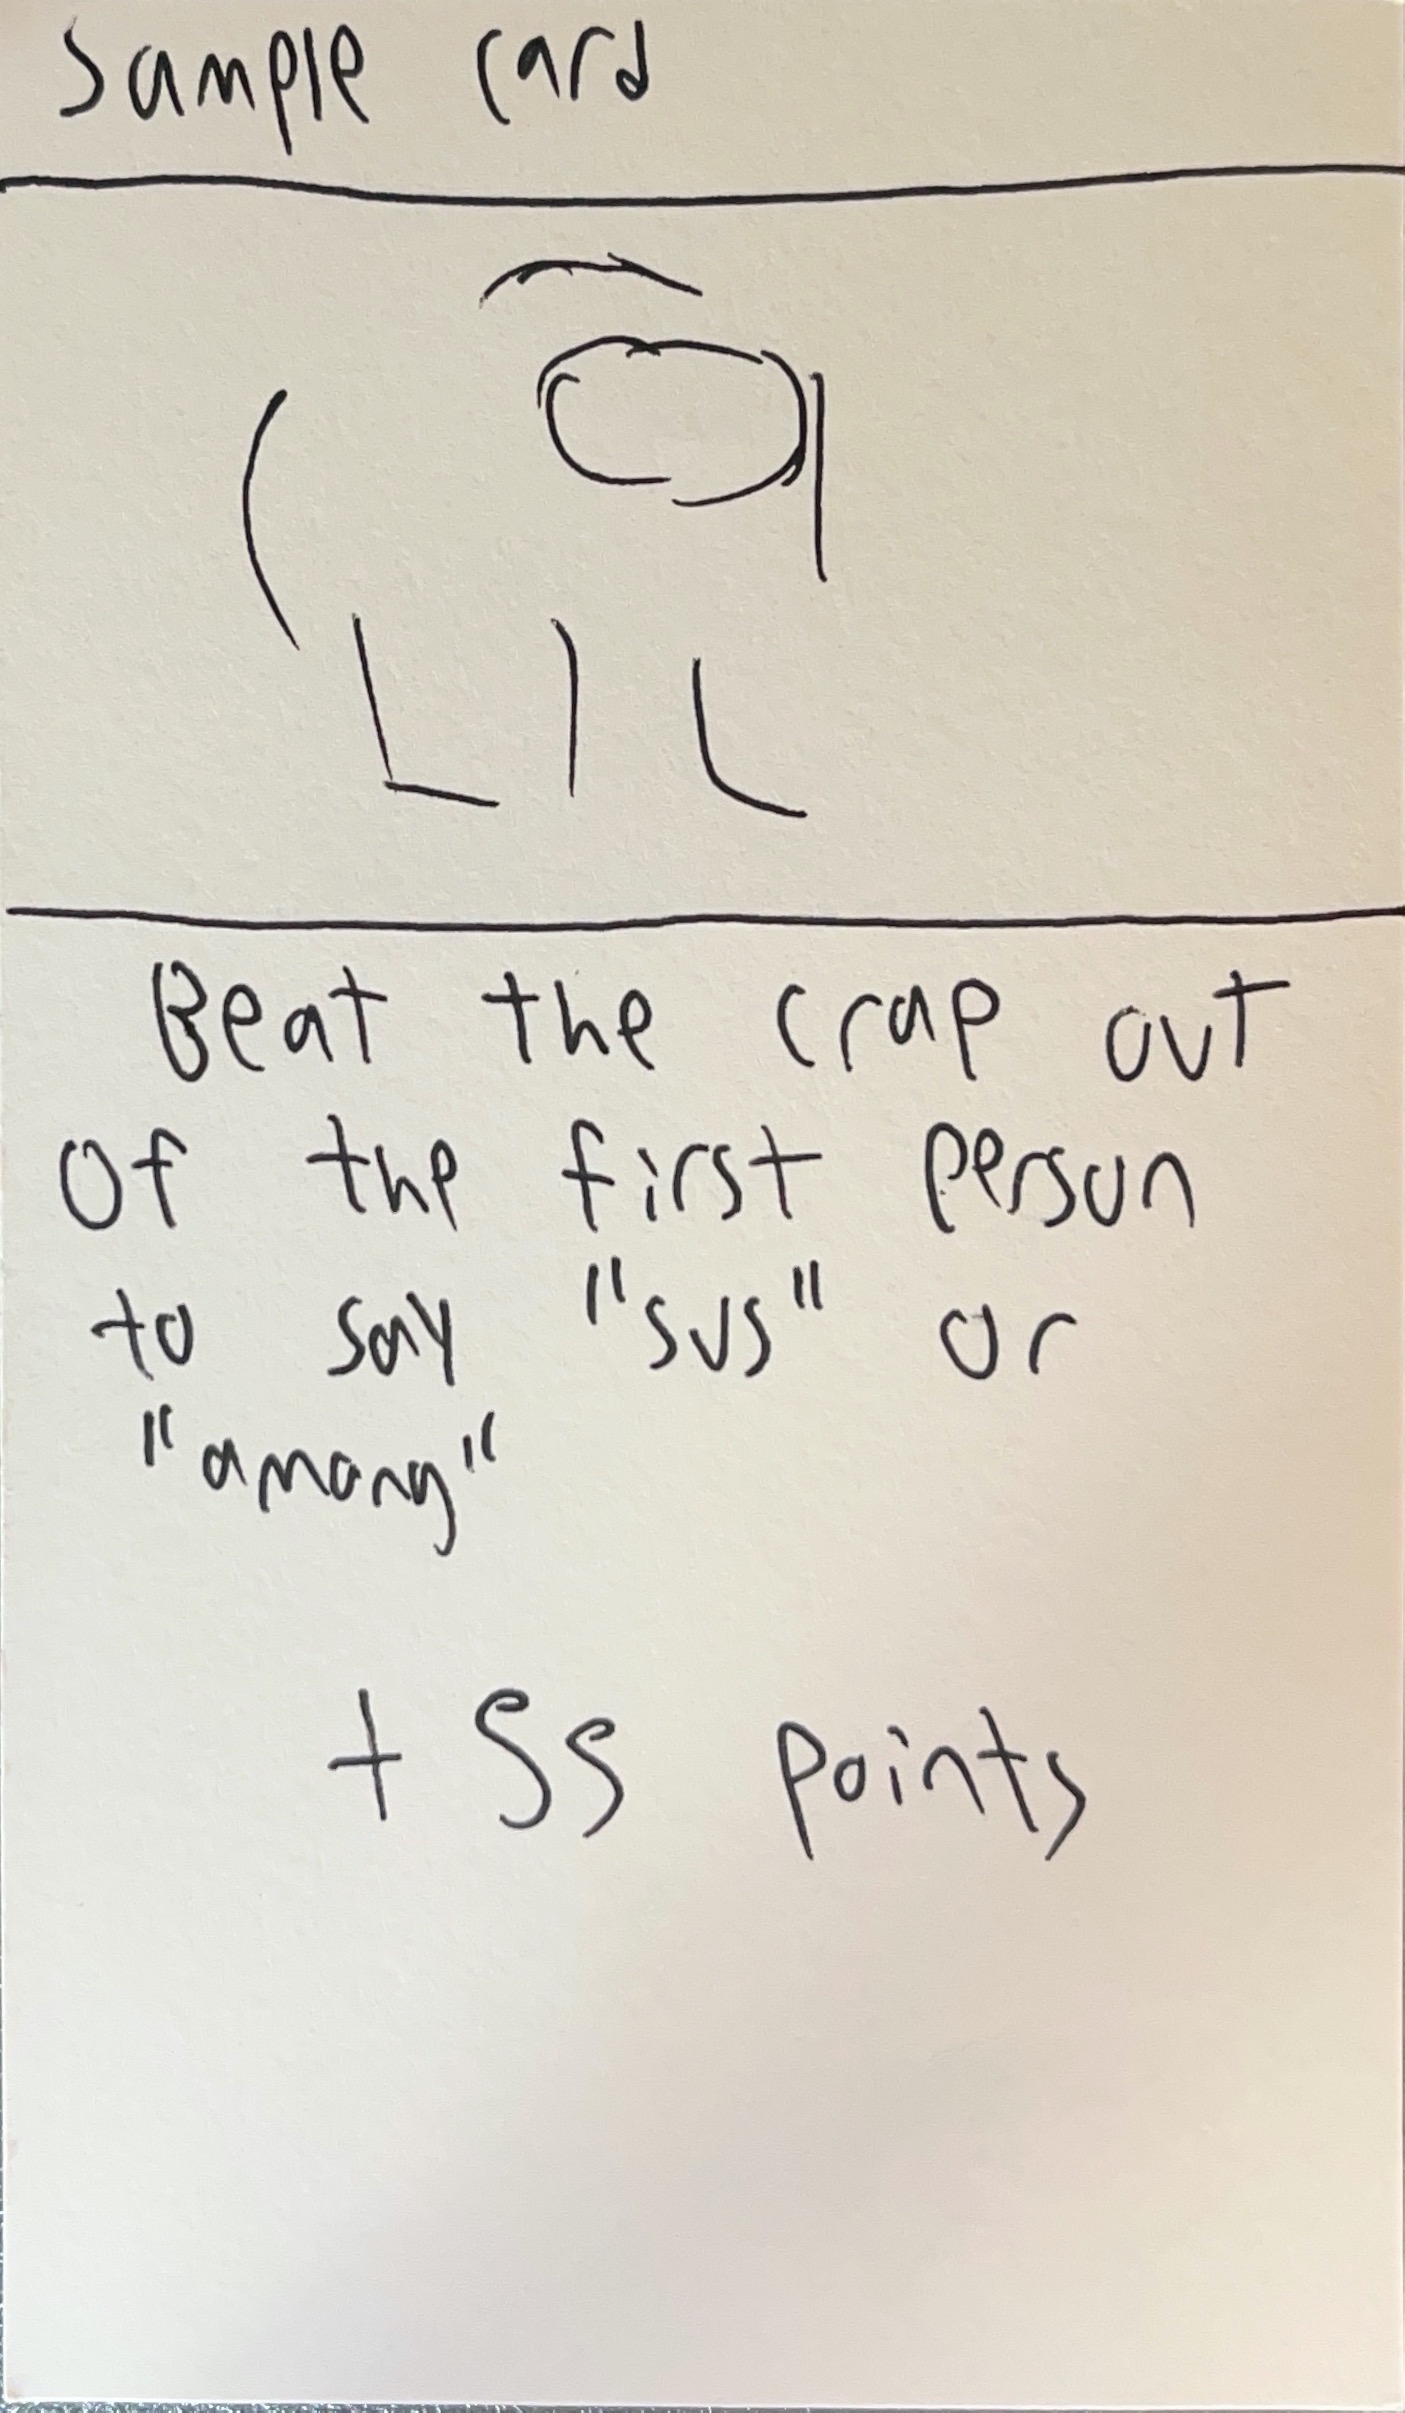 Sample card
Beat the crap out
of the first person
to say "sus" or
"among"
+55 points